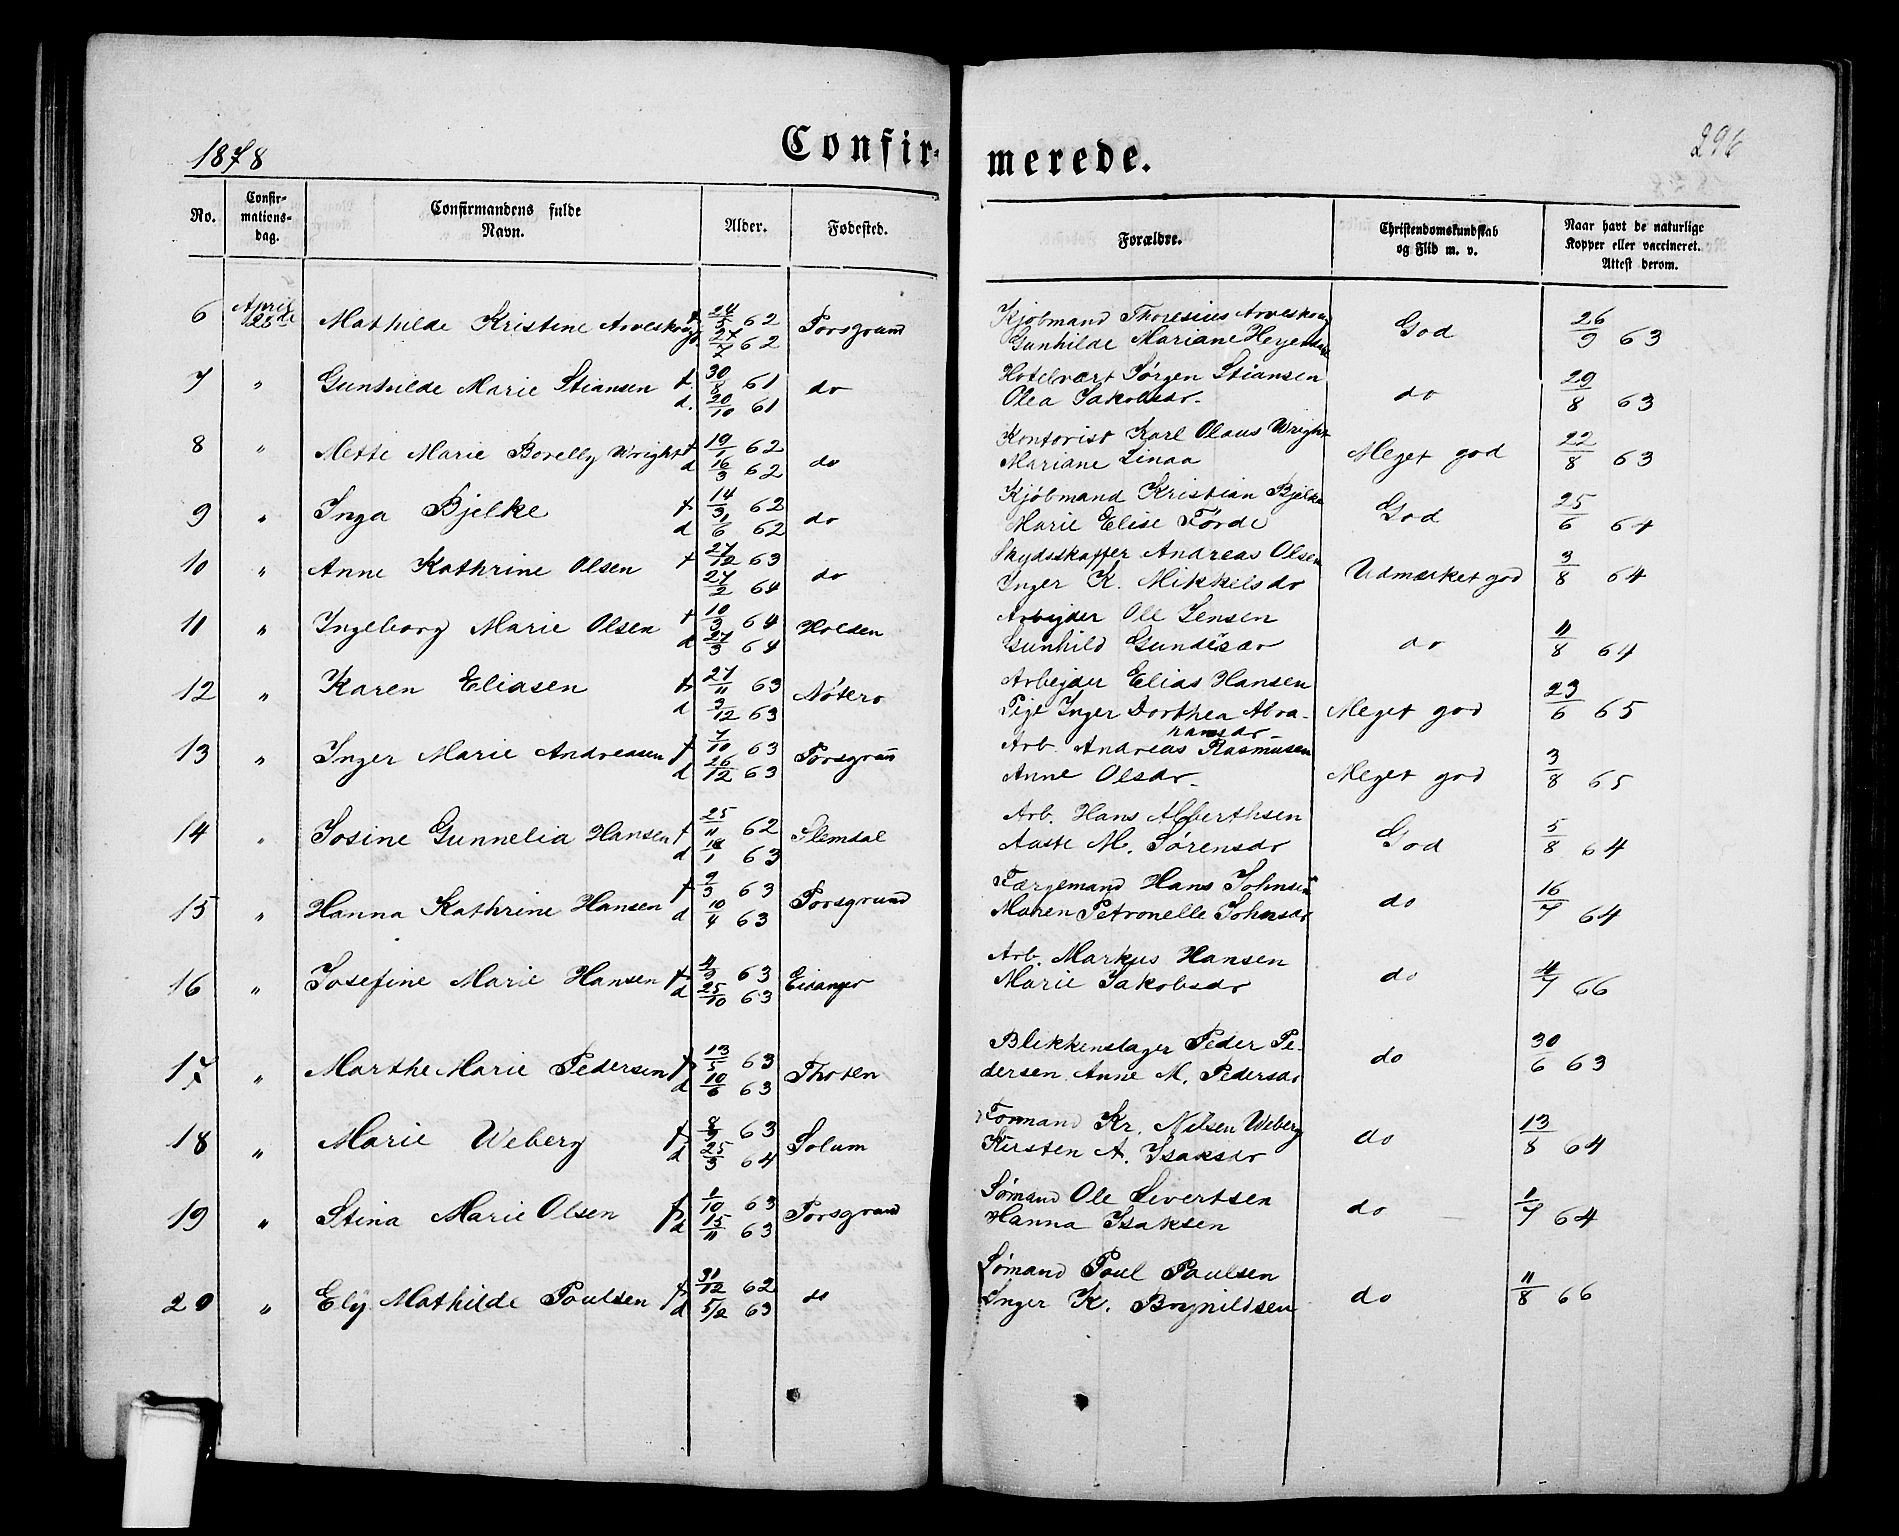 1878
Confir-
merede.
296
No.
Confir-
mations-
dag.
Confirmandens fulde
Navn.
Alder.
Fødested.
Forældre.
Christendomskundskab
og Flid m. v.
Naar havt de naturlige
Kopper eller vaccineret.
Attest derom.
6 April 28de Mathilde Kristine Arveskoug f. 24/5 62 Porsgrund Kjøbmand Thoresius Arveskoug God 26/9 63
27/7 62 Gunhilde Mariane
7 " Gunhilde Marie Stiansen f. 30/8 61 do Hotelvært Jørgen Stiansen do 29/8 63
d. 20/10 61 Olea Jakobsdr.
8 " Mette Marie Borelly Wright f 19/1 62 do Kontorist Karl Olaus Wright Meget god 22/8 63
d 16/3 62 Mariane Linaa
9 " Inga Bjelke f 14/3 62 do Kjøbmand Kristian Bjelke God 25/6 64
d 1/6 62 Marie Elise Førde
10 " Anne Kathrine Olsen f 27/12 63 do Skydsskaffer Andreas Olsen Udmærket god 3/8 64
27/2 64 Inger K. Mikkelsdr
11 " Ingeborg Marie Olsen f 10/3 64 Holden Arbejder Ole Jensen do 11/8 64
d 27/3 64 Gunhild
12 " Karen Eliasen f 27/11 63 Nøtterø Arbejder Elias Hansen Meget god 23/6 65
d 3/12 63 Pige Inger Dorthea Abra-
hamsdr
13 " Inger Marie Andreasen f 7/10 63 Porsgrun̄ Arb. Andreas Rasmusen Meget god 3/8 65
d 26/12 63 Anne Olsdr.
14 " Josine Gunnelia Hansen f 25/11 62 Slemdal Arb. Hans Alberthsen God 5/8 64
d 18/1 63 Aaste M. Sørensdr
15 " Hanna Kathrine Hansen f 9/3 63 Porsgrund Færgemand Hans Johnsen do 16/7 64
d 10/4 63 Maren Petronelle Johnsdr
16 " Josefine Marie Hansen f 4/9 63 Eidanger Arb. Markus Hansen do 4/7 66
d 25/10 63 Marie Jakobsdr
17 " Marthe Marie Pedersen f 13/5 63 Thoten Blikkenslager Peder Pe- do 30/6 63
d 10/6 63 dersen Anne M. Pedersdr
18 " Marie Weberg f 8/9 63 Solum Formand Kr. Nilsen Weberg do 13/8 64
d 25/3 64 Kirsten A. Isaksdr
19 " Stina Marie Olsen f 1/10 63 Porsgrund Sømand Ole Sivertsen do 1/7 64
d 15/11 63 Hanna Isaksen
20 " Ely Mathilde Poulsen f 31/12 62 do Sømand Poul Paulsen do 11/8 66
d 5/2 63 Inger K. Brynildsen